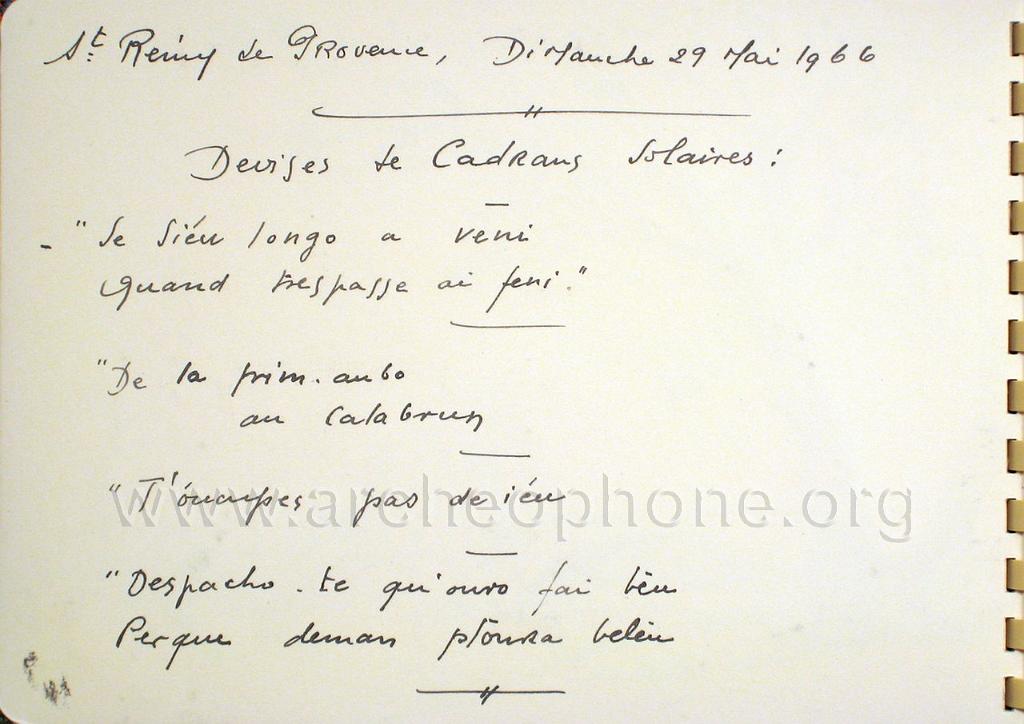 St. Rémy de Provence, Dimanche 29 Mai 1966
Devises de Cadrans Solaires :
- "Se siéu longo a veni
quand trespasse ai feni."
"De la prim-aubo
au calabrun
"T'óucupes pas de iéu
"Despacho-te qu'ouro fai bèu
Perque deman plóura belèu
www.archeophone.org